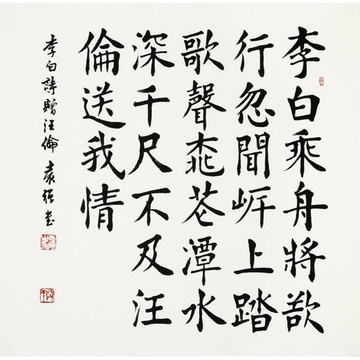 李白乘舟將欲
行忽聞岸上踏
歌聲桃花潭水
深千尺不及汪
倫送我情
李白詩贈汪倫 袁强书